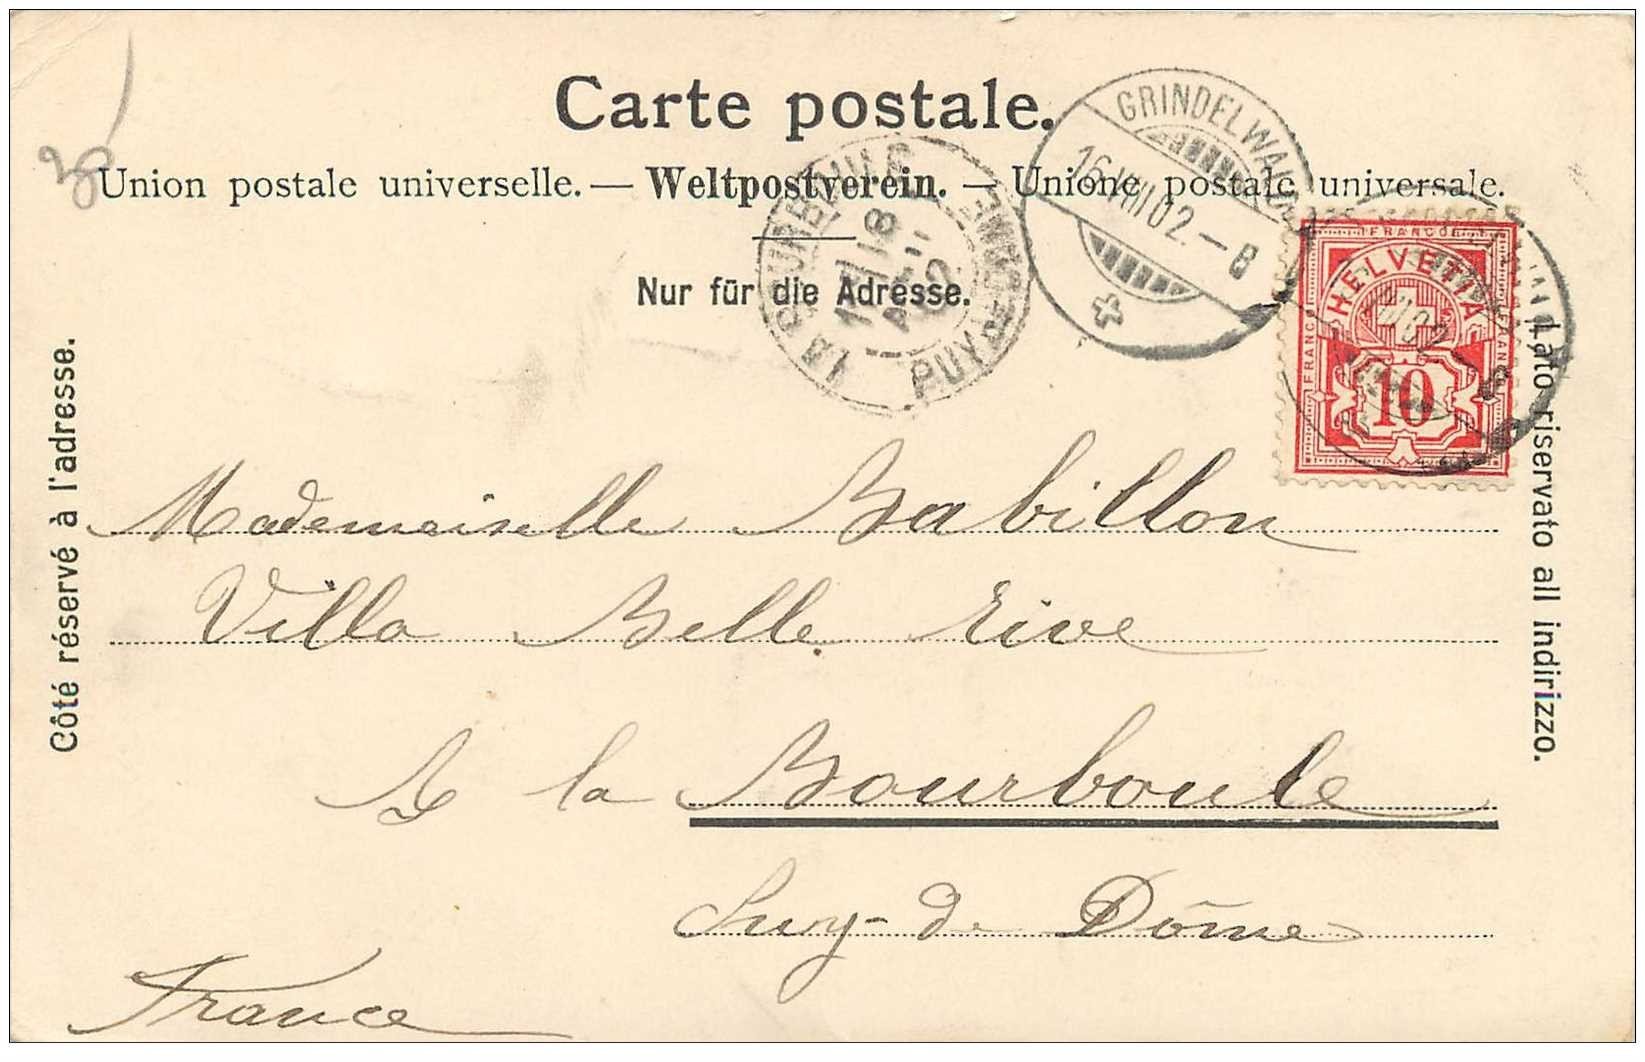 Carte postale.
Union postale universelle. — Weltpostverein. — Unione postale universale.
Nur für die Adresse.
Côté réservé à l'adresse.
Lato riservato all indirizzo.
GRINDELWALD
16.VIII.02.–8
LA BOURBOULE
18
AOUT
02
PUY DE DOME
FRANCO
FRANCO
FRANCO
HELVETIA
10
VIII.02.–8
Mademoiselle Babillon
Villa Belle Rive
A la Bourboule
Puy-de Dôme
France